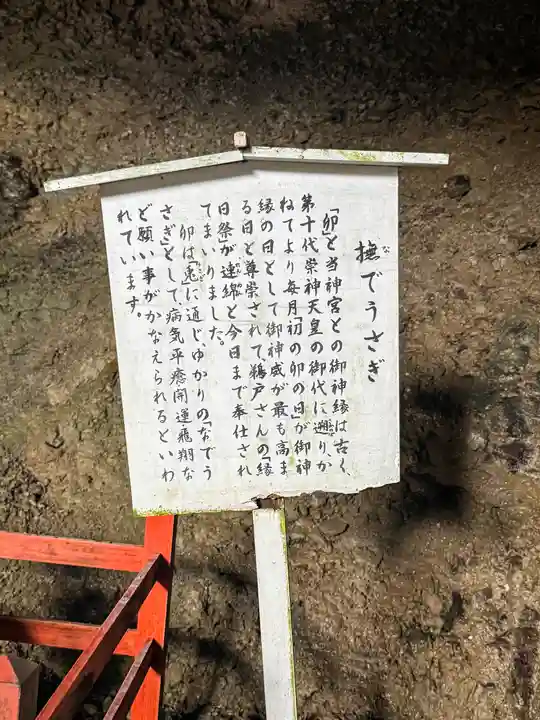 撫でうさぎ
「卯」と当神宮との御神縁は古く、
第十代崇神天皇の御代に遡りか
ねてより毎月「初の卯の日」が御神
縁の日として御神威が最も高ま
る日と尊崇されて、鵜戸さんの「縁
日祭」が連綿と今日まで奉仕され
てまいりました。
卯は「兎」に通じ、ゆかりの「なでう
さぎ」として、病気平癒開運飛翔な
ど願い事がかなえられるといわ
れています。